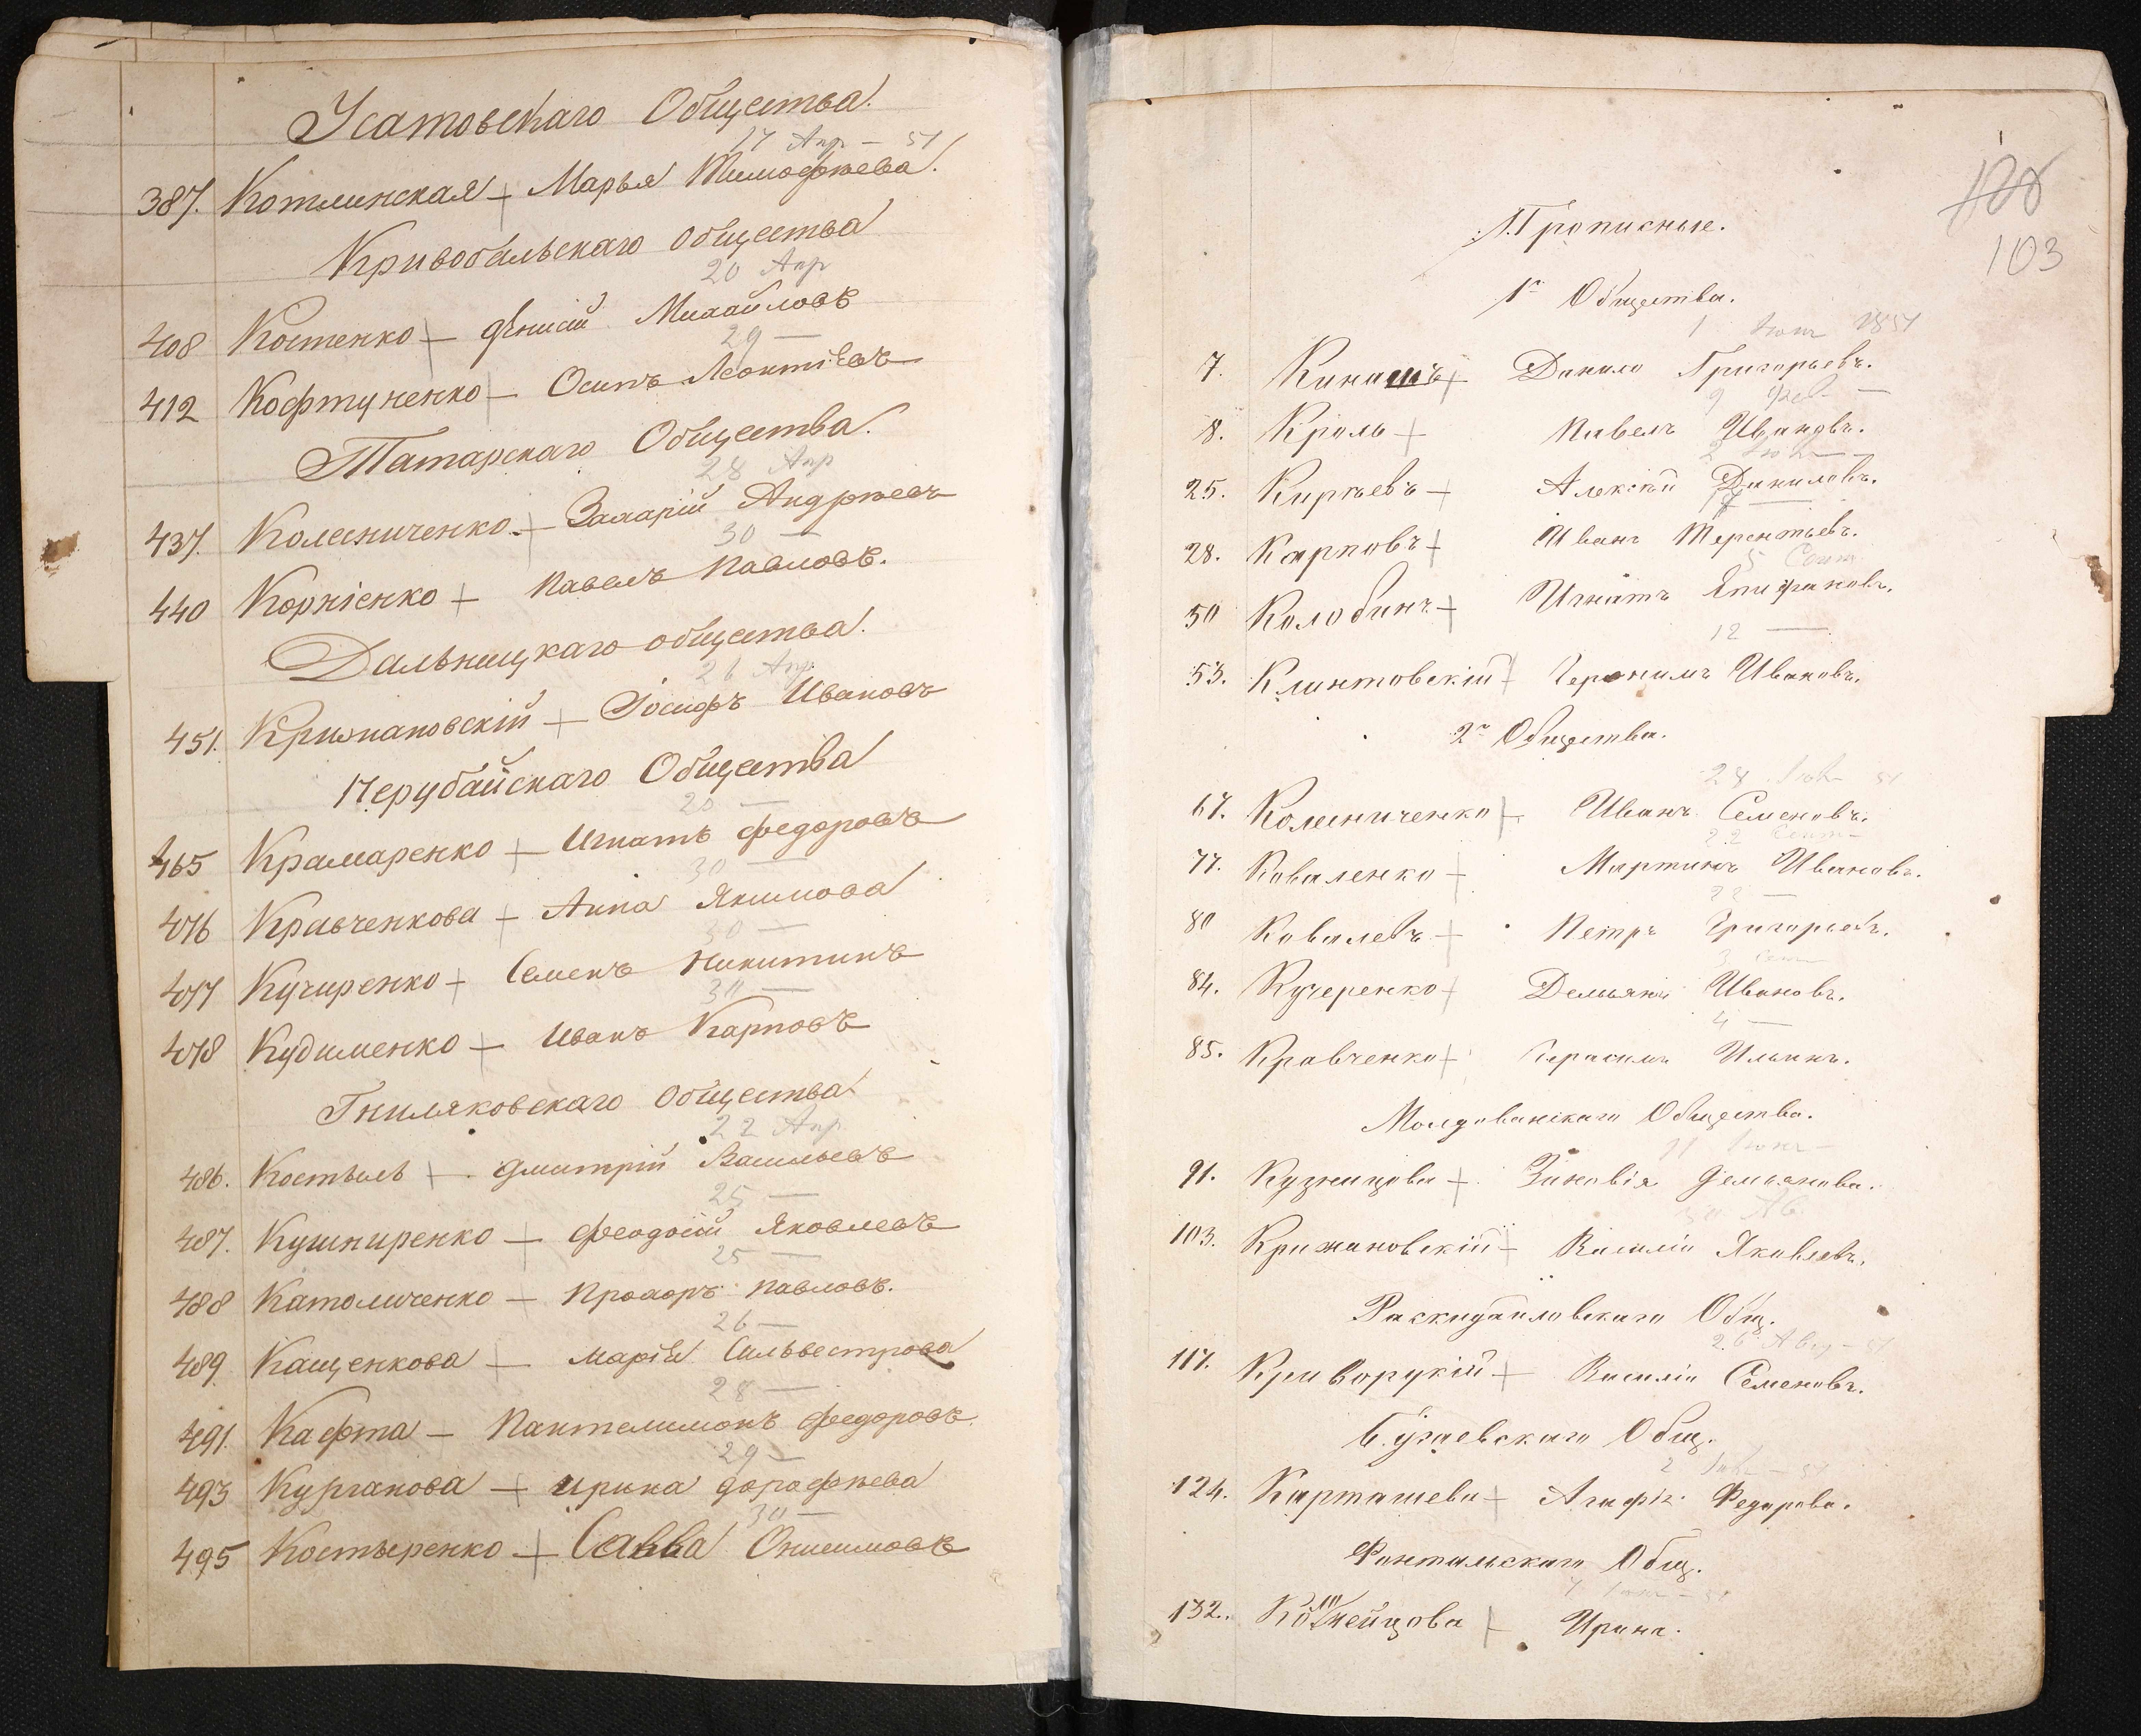 Усатовскаго Общества.
17 Апр — 51
387. Котлинская + Марья Тимофѣева.
Кривобальскаго общества
20 Апр
408 Костенко + Фенисій Михайловъ
29 —
412 Кофтуненко — Осипъ Леонтіевъ
Татарскаго Общества.
28 Апр
437. Колесниченко + Захарій Андрѣевъ
30 —
440 Корніенко + Павелъ Павловъ.
Дальницкаго общества.
26 Апр.
451. Крижановскій + Іосифъ Ивановъ
Нерубайскаго Общества
20 —
465 Крамаренко + Игнатъ Федоровъ
30 —
476 Кравченкова + Анна Якимова
30 —
477 Кучиренко + Семенъ Никитинъ
30 —
478 Кудименко + Иванъ Карповъ
Гниляковскаго Общества
22 Апр
486. Костыль + Дмитрій Васильевъ
25 —
487. Кушниренко + Феодосій Яковлевъ
25 —
488 Католиченко — Прохоръ Павловъ.
26 —
489 Кащенкова + Марія Сильвестрова
28 —
491. Кафта — Пантелимонъ Федоровъ
29 —
493 Курганова + Ирина Дорофѣева
30 —
495 Костыренко + Савва Онисимовъ
103
Прописные.
1го Общества.
1 Іюн 1851
7. Кинашъ + Данило Григорьевъ.
9 —
8. Кроль + Павелъ Ивановъ.
2
25. Кирѣевъ + Алексѣй Даниловъ.
28. Карповъ + Иванъ Терентьевъ.
5 Сент
50 Колобинъ + Игнатъ Епифановъ.
12 —
53. Клинтовскій + Іеронимъ Ивановъ.
2го Общества.
67. Колесниченко + Иванъ Семеновъ.
22 Сент —
77. Коваленко + Мартинъ Ивановъ.
22 —
80 Ковалевъ + Петръ Григорьевъ.
3 Сент
84. Кучеренко + Демьянъ Ивановъ.
4 —
85. Кравченко + Герасимъ Ильинъ.
Молдованскаго Общества.
91. Кузнецова + Зиновія Демьянова.
30 Ав.
103. Крижановскій + Василій Яковлевъ.
Раскидайловскаго Общ.
26 Авг — 51
117. Криворукій + Василій Семеновъ.
Бугаевскаго Общ.
124. Карташева + Агафія Федорова.
Фонтальскаго Общ.
132. + Ирина.